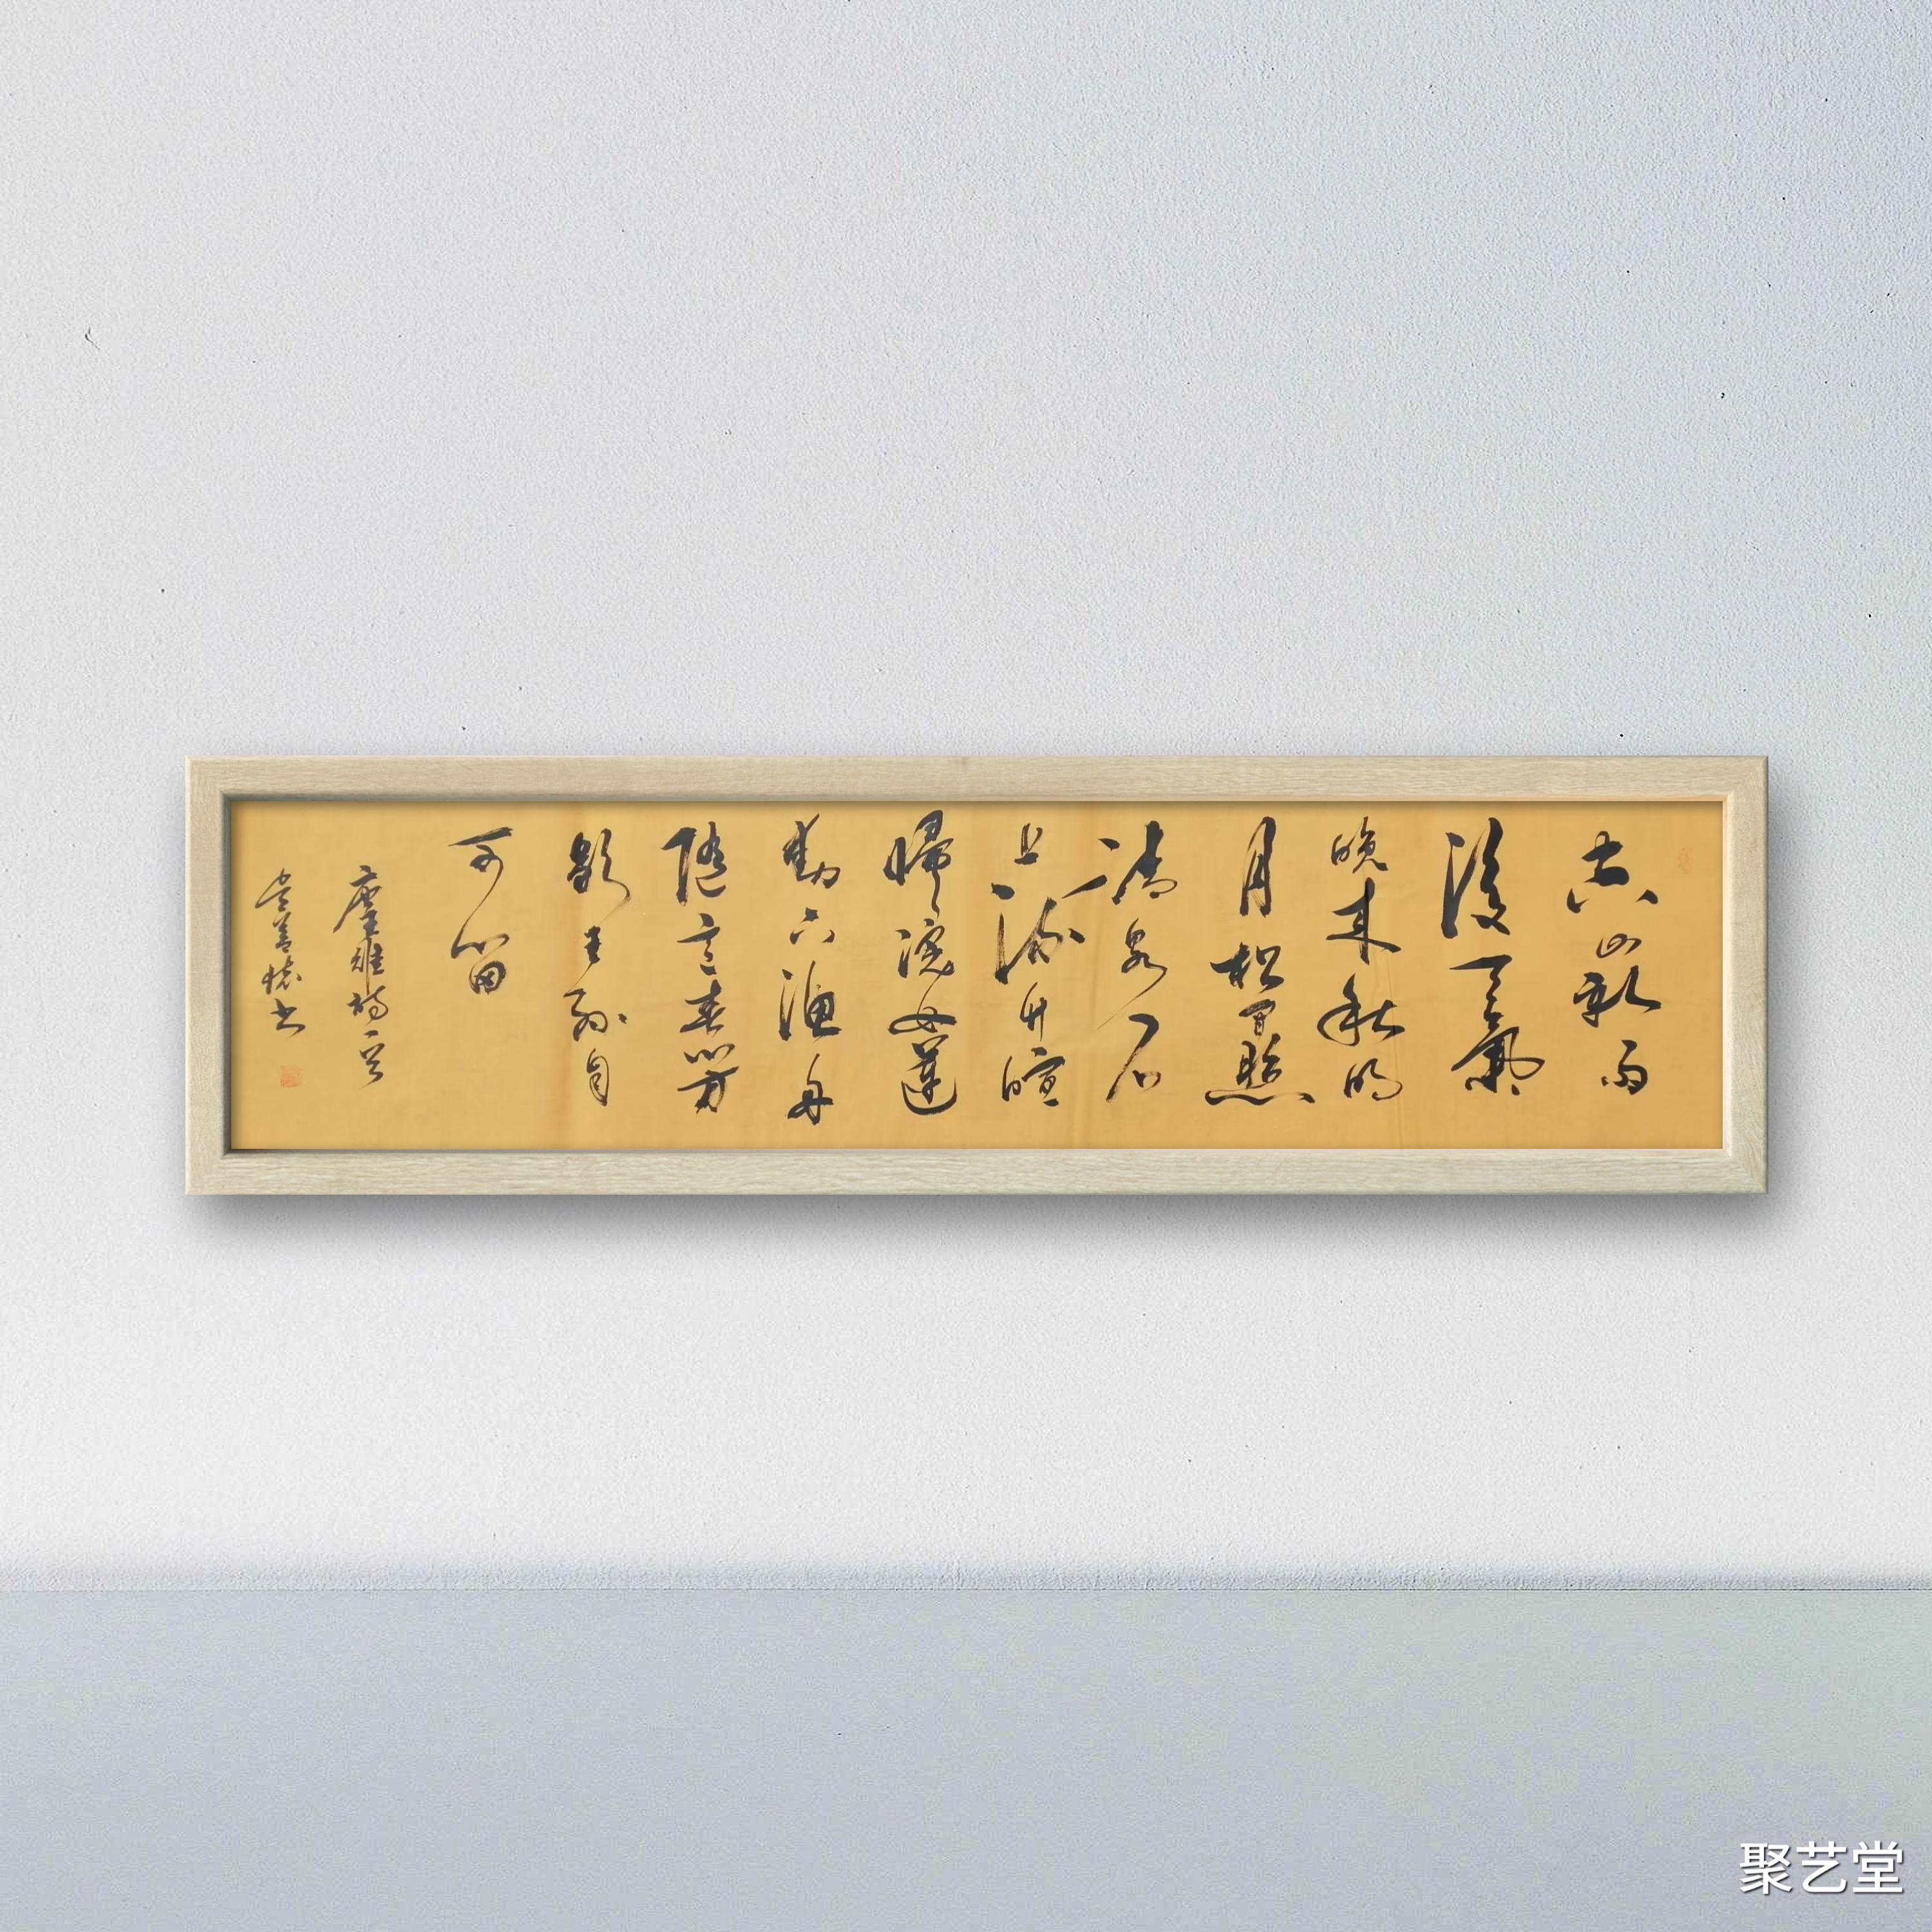 空山新雨
後天氣
晚来秋明
月松間照
清泉石
上流竹喧
歸浣女蓮
動下漁舟
隨意春芳
歇王孫自
可留
摩維詩一首
書
聚艺堂